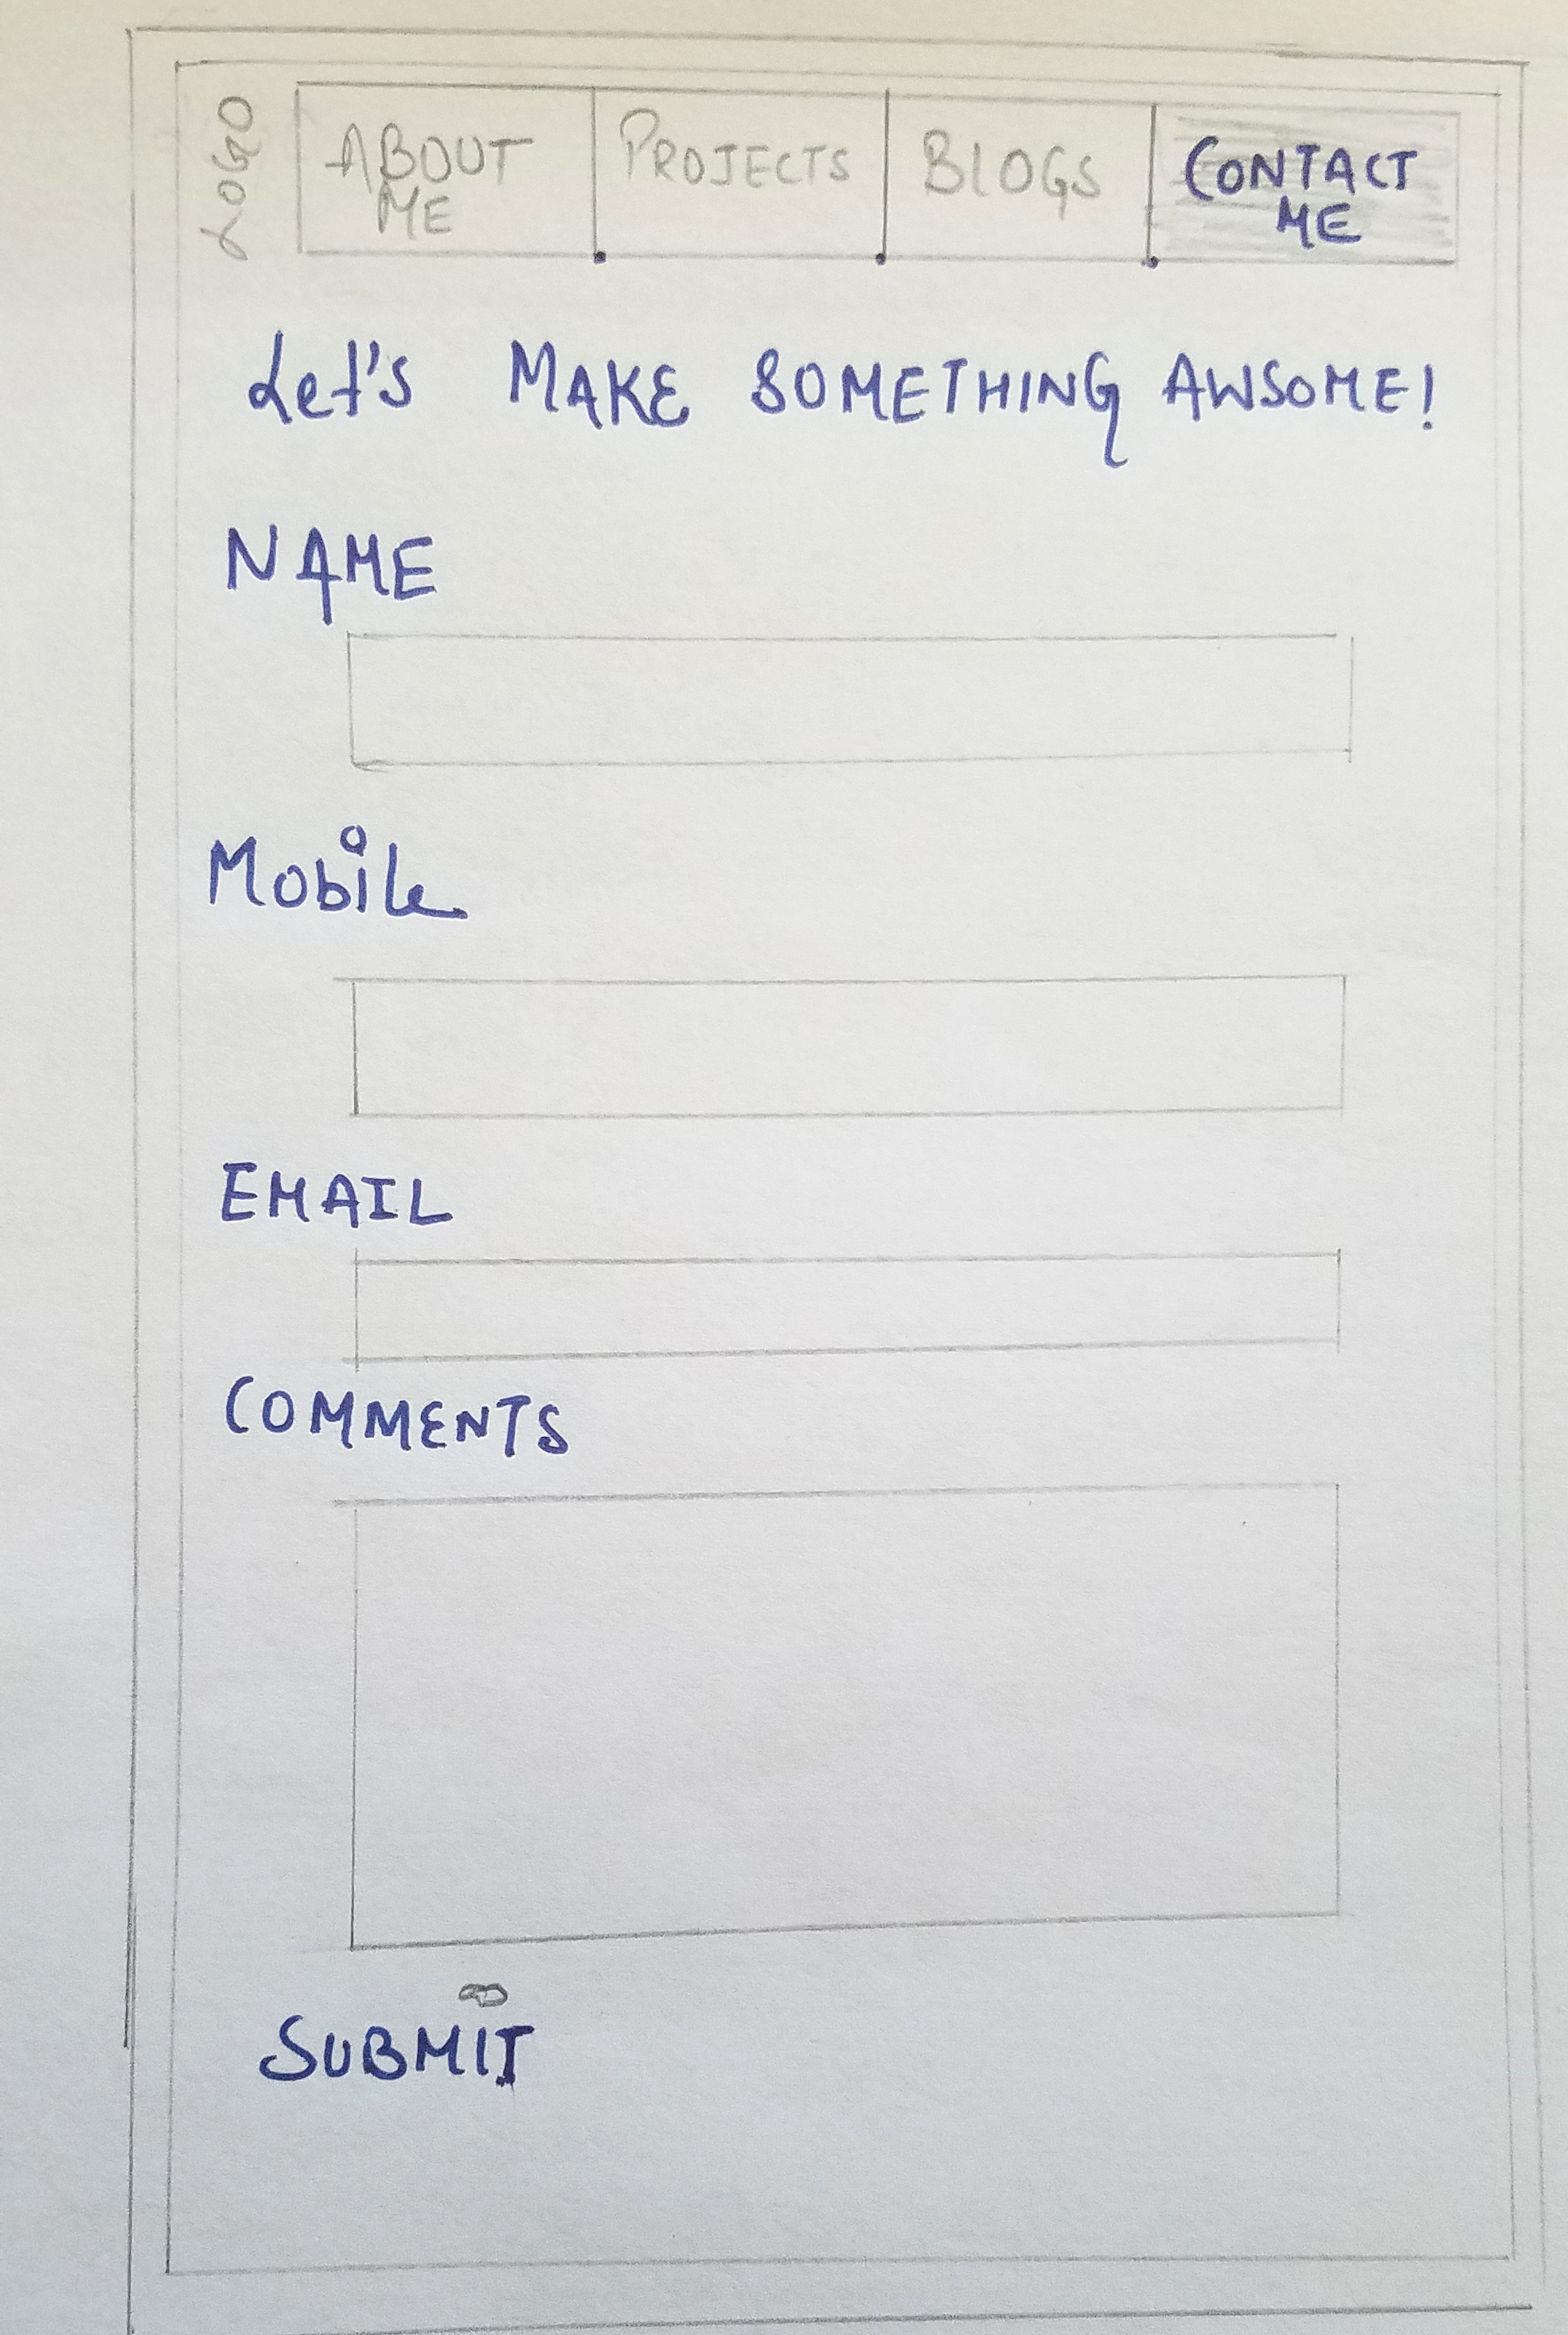 LOGO
ABOUT ME
PROJECTS
BLOGS
CONTACT ME
Let's MAKE SOMETHING AWSOME!
NAME
Mobile
EMAIL
COMMENTS
SUBMIT